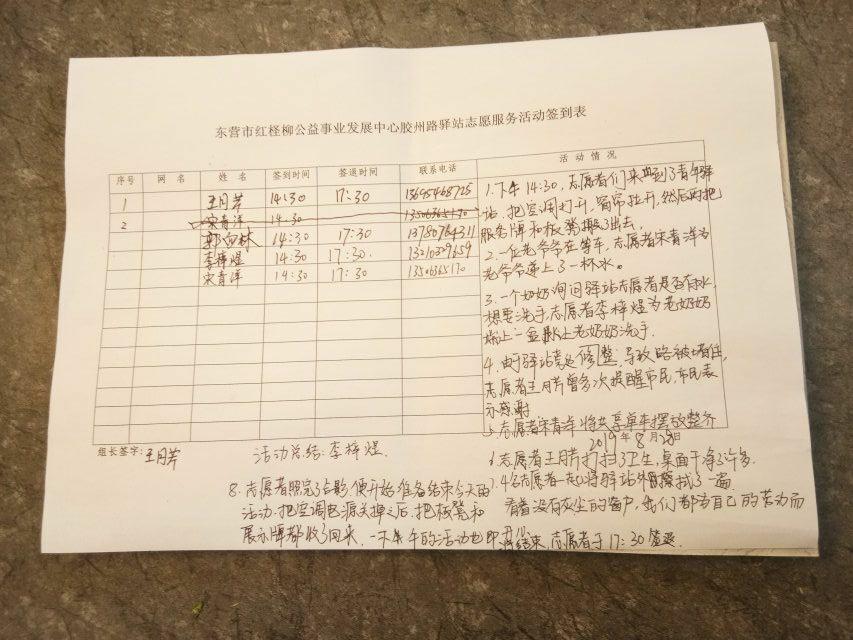 东营市红柽柳公益事业发展中心胶州路驿站志愿服务活动签到表
序号 网名 姓名 签到时间 签退时间 联系电话 活动情况
1 王月芳 14:30 17:30 13695468725
2 宋青洋 14:30 13506365170
14:30 17:30 13780784311
李梓煜 14:30 17:30. 13210329659
宋青洋 14:30 17:30 13506365170
1.下午14:30,志愿者们来到了青年驿
站,把空调打开,窗帘拉开,然后再把
服务牌和板凳搬了出去。
2.一位老爷爷在等车,志愿者宋青洋为
老爷爷递上了一杯水。
3.一个奶奶询问驿站志愿者是否有水,
想要洗手,志愿者李梓煜为老奶奶
端上一盆水让老奶奶洗手.
4.由于驿站旁边修整,导致路被堵住,
志愿者王月芳曾多次提醒市民,市民表
示感谢
5.志愿者宋青洋将共享单车摆放整齐
2019年8月28日
组长签字:王月芳 活动总结:李梓煜.
6.志愿者王月芳打扫了卫生,桌面干净了许多.
7.4名志愿者一起将驿站外擦了一遍
看着没有灰尘的窗户,我们都为自己的劳动而
8.志愿者照完了合影,便开始准备结束今天的
活动.把空调电源关掉之后.把板凳和
展示牌都收了回来.一下午的活动也即将结束,志愿者于17:30签退.